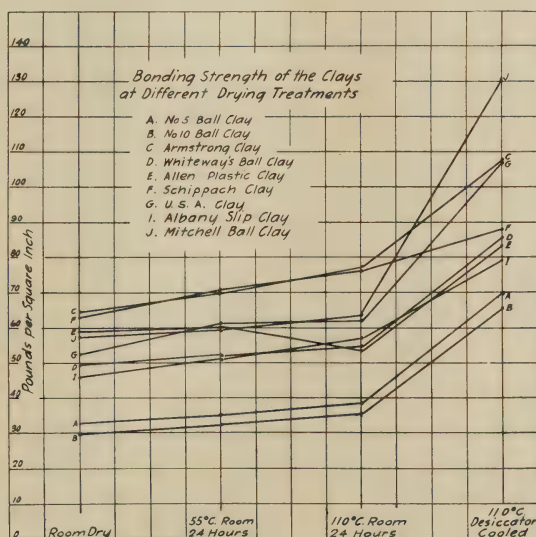 140
130
120
110
100
90
80
70
60
50
30
20
10
0
Pounds per Square Inch
Bonding Strength of the Clays
at Different Drying Treatments
A. No 5 Ball Clay
B. No 10 Ball Clay
C Armstrong Clay
D. Whiteway's Ball Clay
E. Allen Plastic Clay
F. Schippach Clay
G. U.S.A. Clay
I. Albany Slip Clay
J. Mitchell Ball Clay
C
F
E
J
G
D
I
A
B
J
C
G
F
D
E
I
A
B
Room Dry
55°C. Room
24 Hours
110°C. Room
24 Hours
110°C.
Desiccator
Cooled